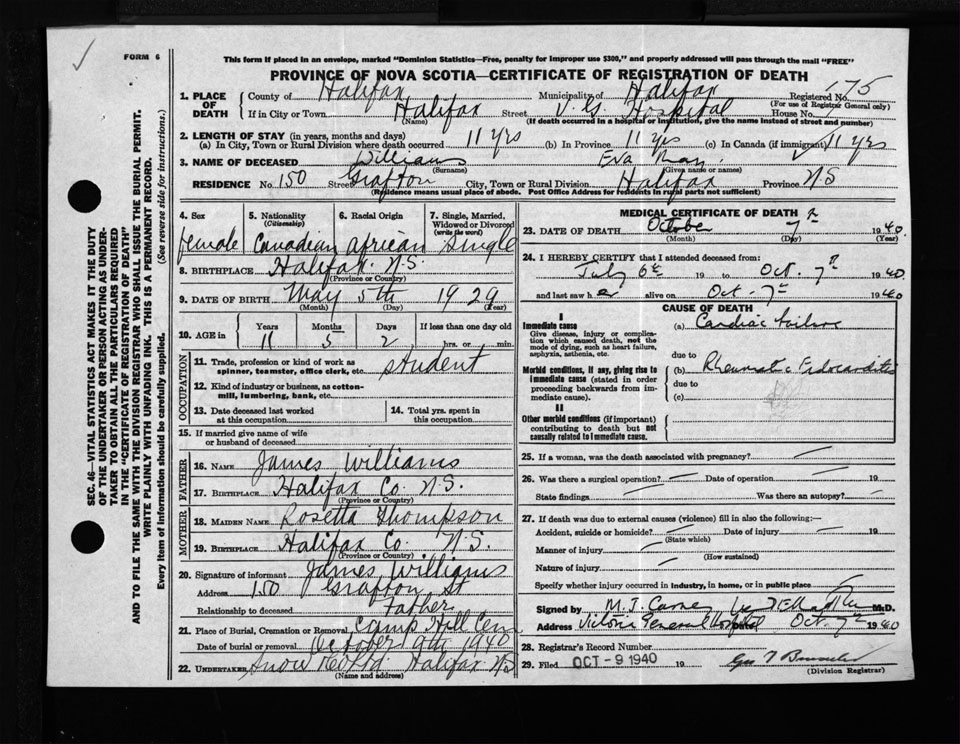 FORM 6
This form if placed in an envelope, marked "Dominion Statistics—Free, penalty for improper use $300," and properly addressed will pass through the mail "FREE"
PROVINCE OF NOVA SCOTIA—CERTIFICATE OF REGISTRATION OF DEATH
SEC. 46—VITAL STATISTICS ACT MAKES IT THE DUTY
OF THE UNDERTAKER OR PERSON ACTING AS UNDER-
TAKER TO OBTAIN ALL THE PARTICULARS REQUIRED
IN THE "CERTIFICATE OF REGISTRATION OF DEATH"
AND TO FILE THE SAME WITH THE DIVISION REGISTRAR WHO SHALL ISSUE THE BURIAL PERMIT.
WRITE PLAINLY WITH UNFADING INK. THIS IS A PERMANENT RECORD.
Every item of information should be carefully supplied. (See reverse side for instructions.)
1. PLACE OF DEATH
County of Halifax Municipality of Halifax Registered No. 75
(For use of Registrar General only)
If in City or Town Halifax Street V. G. Hospital House No.
(Name) (If death occurred in a hospital or institution, give the name instead of street and number)
2. LENGTH OF STAY (in years, months and days)
(a) In City, Town or Rural Division where death occurred 11 yrs (b) In Province 11 yrs (c) In Canada (if immigrant) 11 yrs
3. NAME OF DECEASED Williams Eva May
(Surname) (Given name or names)
RESIDENCE No. 150 Street Grafton City, Town or Rural Division Halifax Province NS
(Residence means usual place of abode. Post Office Address for Residents in rural parts not sufficient)
4. Sex 5. Nationality (Citizenship) 6. Racial Origin 7. Single, Married, Widowed or Divorced (write the word)
female Canadian African Single
8. BIRTHPLACE Halifax N.S.
(Province or Country)
9. DATE OF BIRTH May 5th 1929
(Month) (Day) (Year)
10. AGE in Years Months Days If less than one day old
11 5 2 hrs. or min.
OCCUPATION
11. Trade, profession or kind of work as spinner, teamster, office clerk, etc. student
12. Kind of industry or business, as cotton-mill, lumbering, bank, etc.
13. Date deceased last worked at this occupation
14. Total yrs. spent in this occupation
15. If married give name of wife or husband of deceased
FATHER
16. NAME James Williams
17. BIRTHPLACE Halifax Co. N.S.
(Province or Country)
MOTHER
18. MAIDEN NAME Rosetta Thompson
19. BIRTHPLACE Halifax Co. N.S.
(Province or Country)
20. Signature of informant James Williams
Address 150 Grafton St
Relationship to deceased Father
21. Place of Burial, Cremation or Removal Camp Hill Cem
Date of burial or removal October 9th 1940
22. UNDERTAKER Snow Halifax NS
(Name and address)
MEDICAL CERTIFICATE OF DEATH
23. DATE OF DEATH October 7th 1940
(Month) (Day) (Year)
24. I HEREBY CERTIFY that I attended deceased from:
July 6th 19 to Oct. 7th 1940
and last saw her alive on Oct. 7th 1940
CAUSE OF DEATH
I
Immediate cause
Give disease, injury or complication which caused death, not the mode of dying, such as heart failure, asphyxia, asthenia, etc.
(a) Cardiac failure
due to
Morbid conditions, if any, giving rise to immediate cause (stated in order proceeding backwards from immediate cause).
(b) Rheumatic Endocarditis
due to
(c)
II
Other morbid conditions (if important) contributing to death but not causally related to immediate cause.
25. If a woman, was the death associated with pregnancy?
26. Was there a surgical operation? Date of operation 19
State findings Was there an autopsy?
27. If death was due to external causes (violence) fill in also the following:—
Accident, suicide or homicide? Date of injury 19
(State which)
Manner of injury
(How sustained)
Nature of injury
Specify whether injury occurred in industry, in home, or in public place
Signed by M. J. Carney M.D.
Address Victoria General Hospital Oct. 7th 1940
28. Registrar's Record Number
29. Filed OCT - 9 1940 19
(Division Registrar)